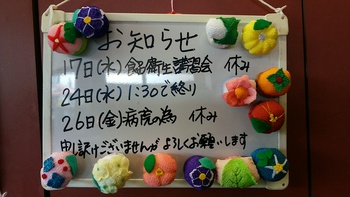 お知らせ
17日(水)食品衛生講習会 休み
24日(水)1:30で終り
26日(金)病院の為 休み
申し訳けございませんがよろしくお願いします